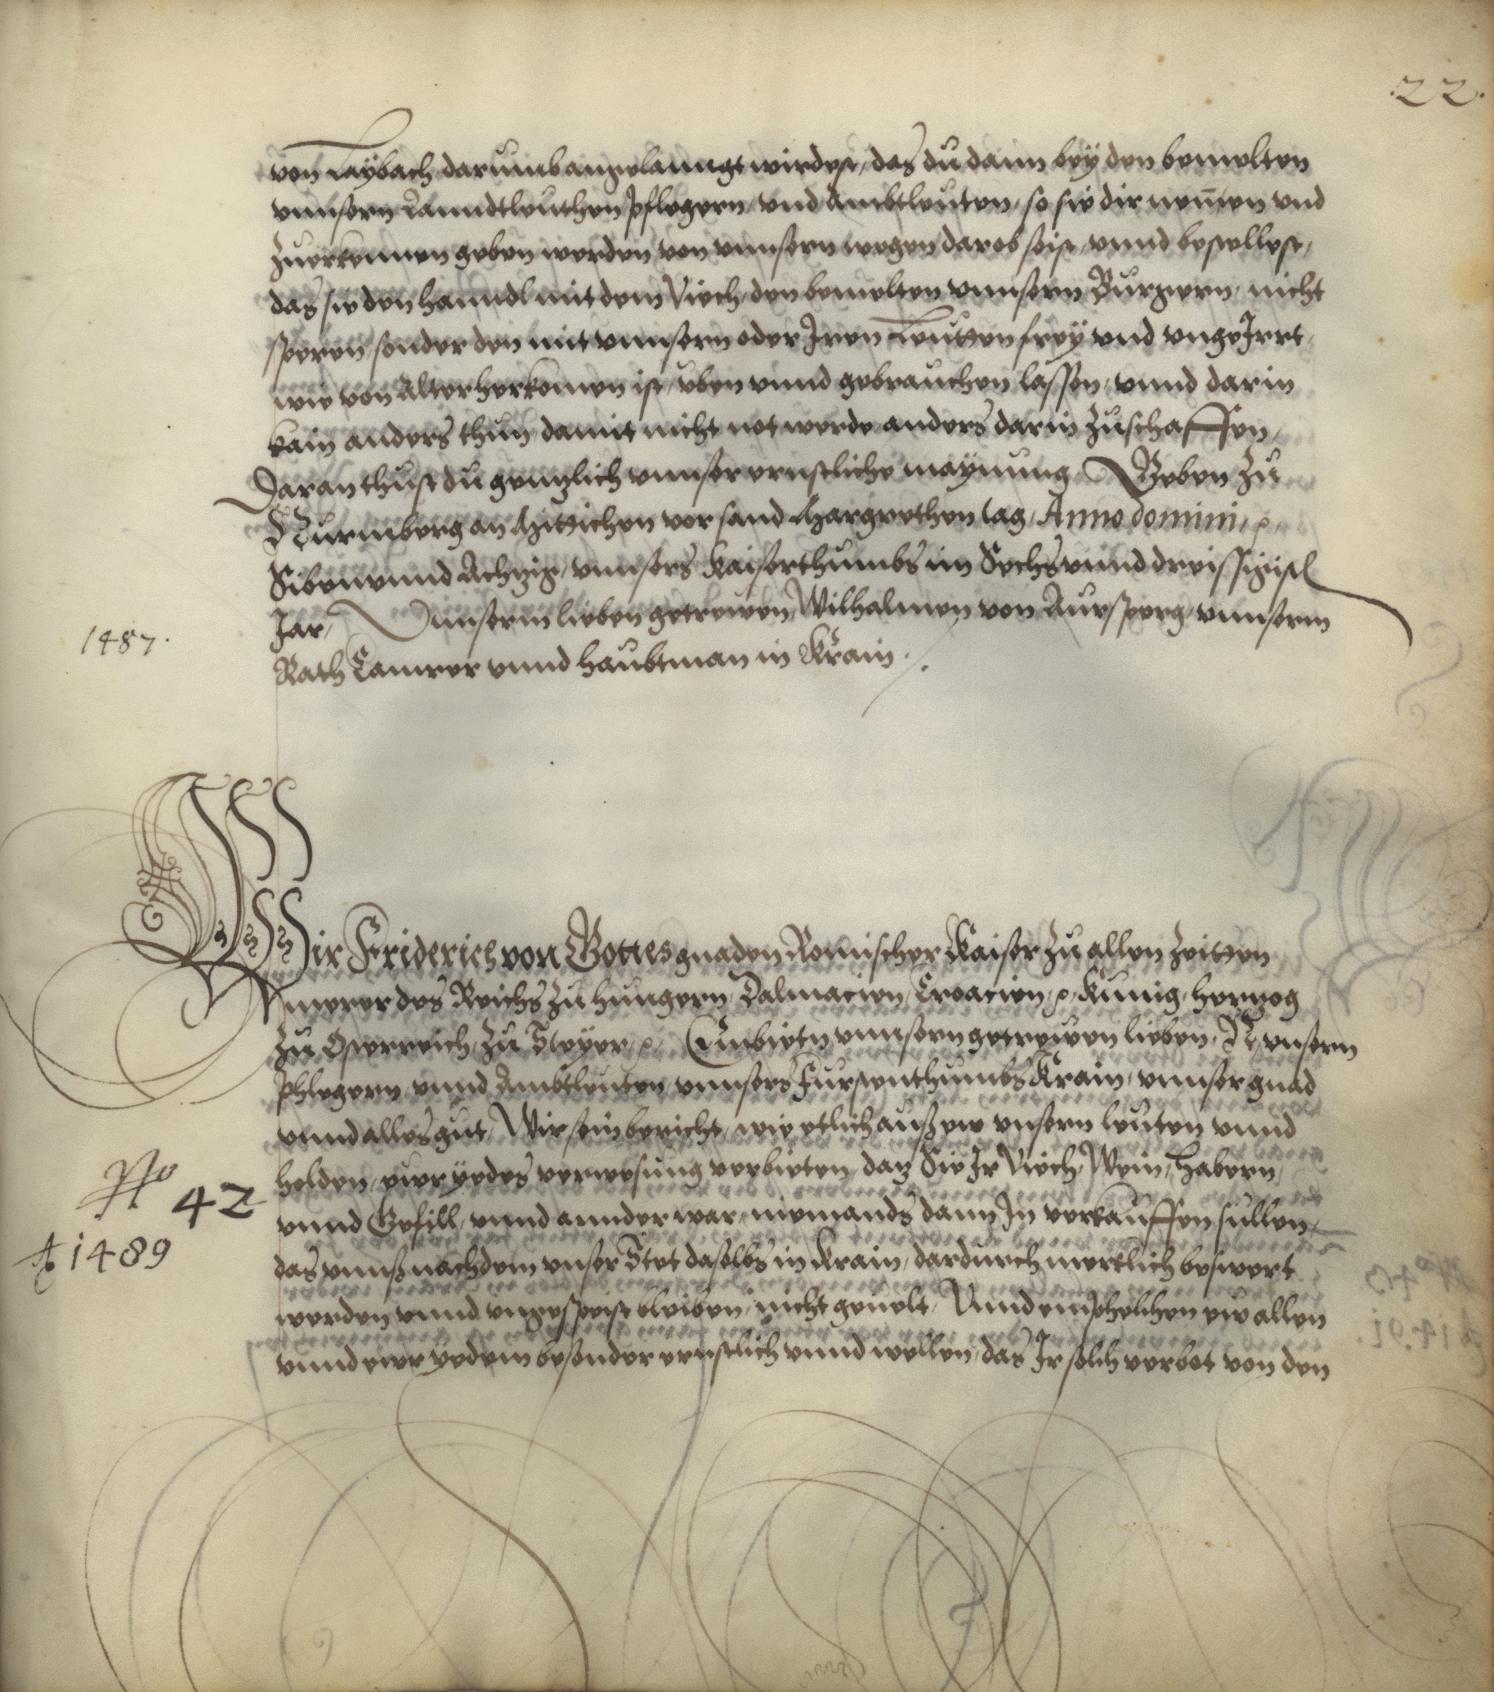 .22.
von Laÿbach darumb angelanngt wirdest, das du dann beÿ den bemelten
vnnsern Lanndtleuthen Pflegern, vnd Ambtleuten, so sie dir nen̄en vnd
zuerkennen geben werden von vnnsern wegen darob seist, vnnd bestellest,
das sie den hanndl mit dem Viech, den bemelten vnnsern Burgern, nicht
speren sonder den mit vnnsern oder Iren Leutten freÿ vnd vngeIrrt,
wie von Alter herkomen ist, vben vnnd gebrauchen lassen, vnnd darin
kain anders thun, damit nicht not werde anders darin zuschaffen,
Daran thust du genntzlich vnnser ernstliche maÿnung. Geben zu
Nurmberg an Mittichen vor sand Margrethen tag, Anno domini, ꝛc.
Siben vnnd Achtzig, vnnsers Kaiserthumbs im Sechs vnnd dreissigistn
1487.
Jar, Vnnserm lieben getrewen, Wilhalmen von Aursperg, vnnserm
Rath Camrer vnnd haubtman in Krain.
Wir Friderich von Gottes gnaden Romischer Kaiser zu allen Zeitten
merer des Reichs zu Hungern, Dalmacien, Croacien, ꝛc. Kunig, Hertzog
zu Osterreich, zu Steyer, ꝛc. Embietn vnnsern getrewen lieben, N, vnsern
Phlegern vnnd Ambtleuten vnnsers Furstenthumbs Krain, vnnser gnad
vnnd alles gut, Wir sein bericht, wie etlich auß ew vnsern leuten vnnd
No 42
holden, ewr yedes verwesung verbieten, daz Sie Ir Viech, Wein, Habern,
vnnd Gefill, vnnd annder war, niemands dann In verkauffen sullen,
Ao 1489
das vnnß nachdem vnser Stet daselbs in Krain, dardurch mercklich beswert
werden vnnd vngespeist bleiben, nicht geuelt, Vnnd emphelhen ew allen
vnnd ewr yedem besonder ernstlich vnnd wellen, das Ir solch verbot von den